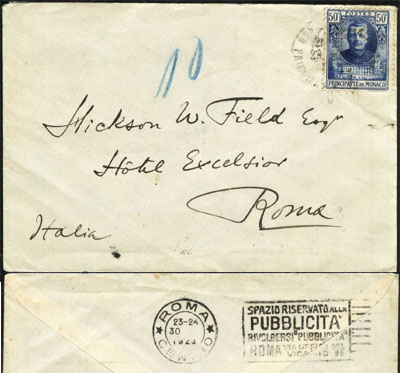 50c POSTES 50c
PRINCIPAUTÉ DE MONACO
10
Hickson W. Field Esqr
Hôtel Excelsior
Roma
Italia
ROMA
23-24
30
CENTRO
SPAZIO RISERVATO ALLA
PUBBLICITÀ
RIVOLGERSI PUBBLICITÀ
ROMA